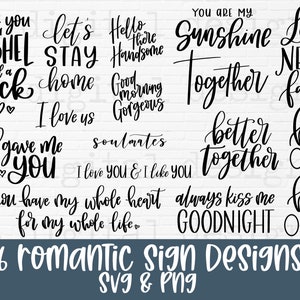 you
a
let's
STAY
home
I love us
Hello
there
Handsome
Good
morning
Gorgeous
YOU ARE MY
Sunshine
Together
gave me
YOU
soulmates
I love YOU & I like YOU
better
together
you have my whole heart
for my whole life
always kiss me
GOODNIGHT
6 ROMANTIC SIGN DESIGNS
SVG & PNG